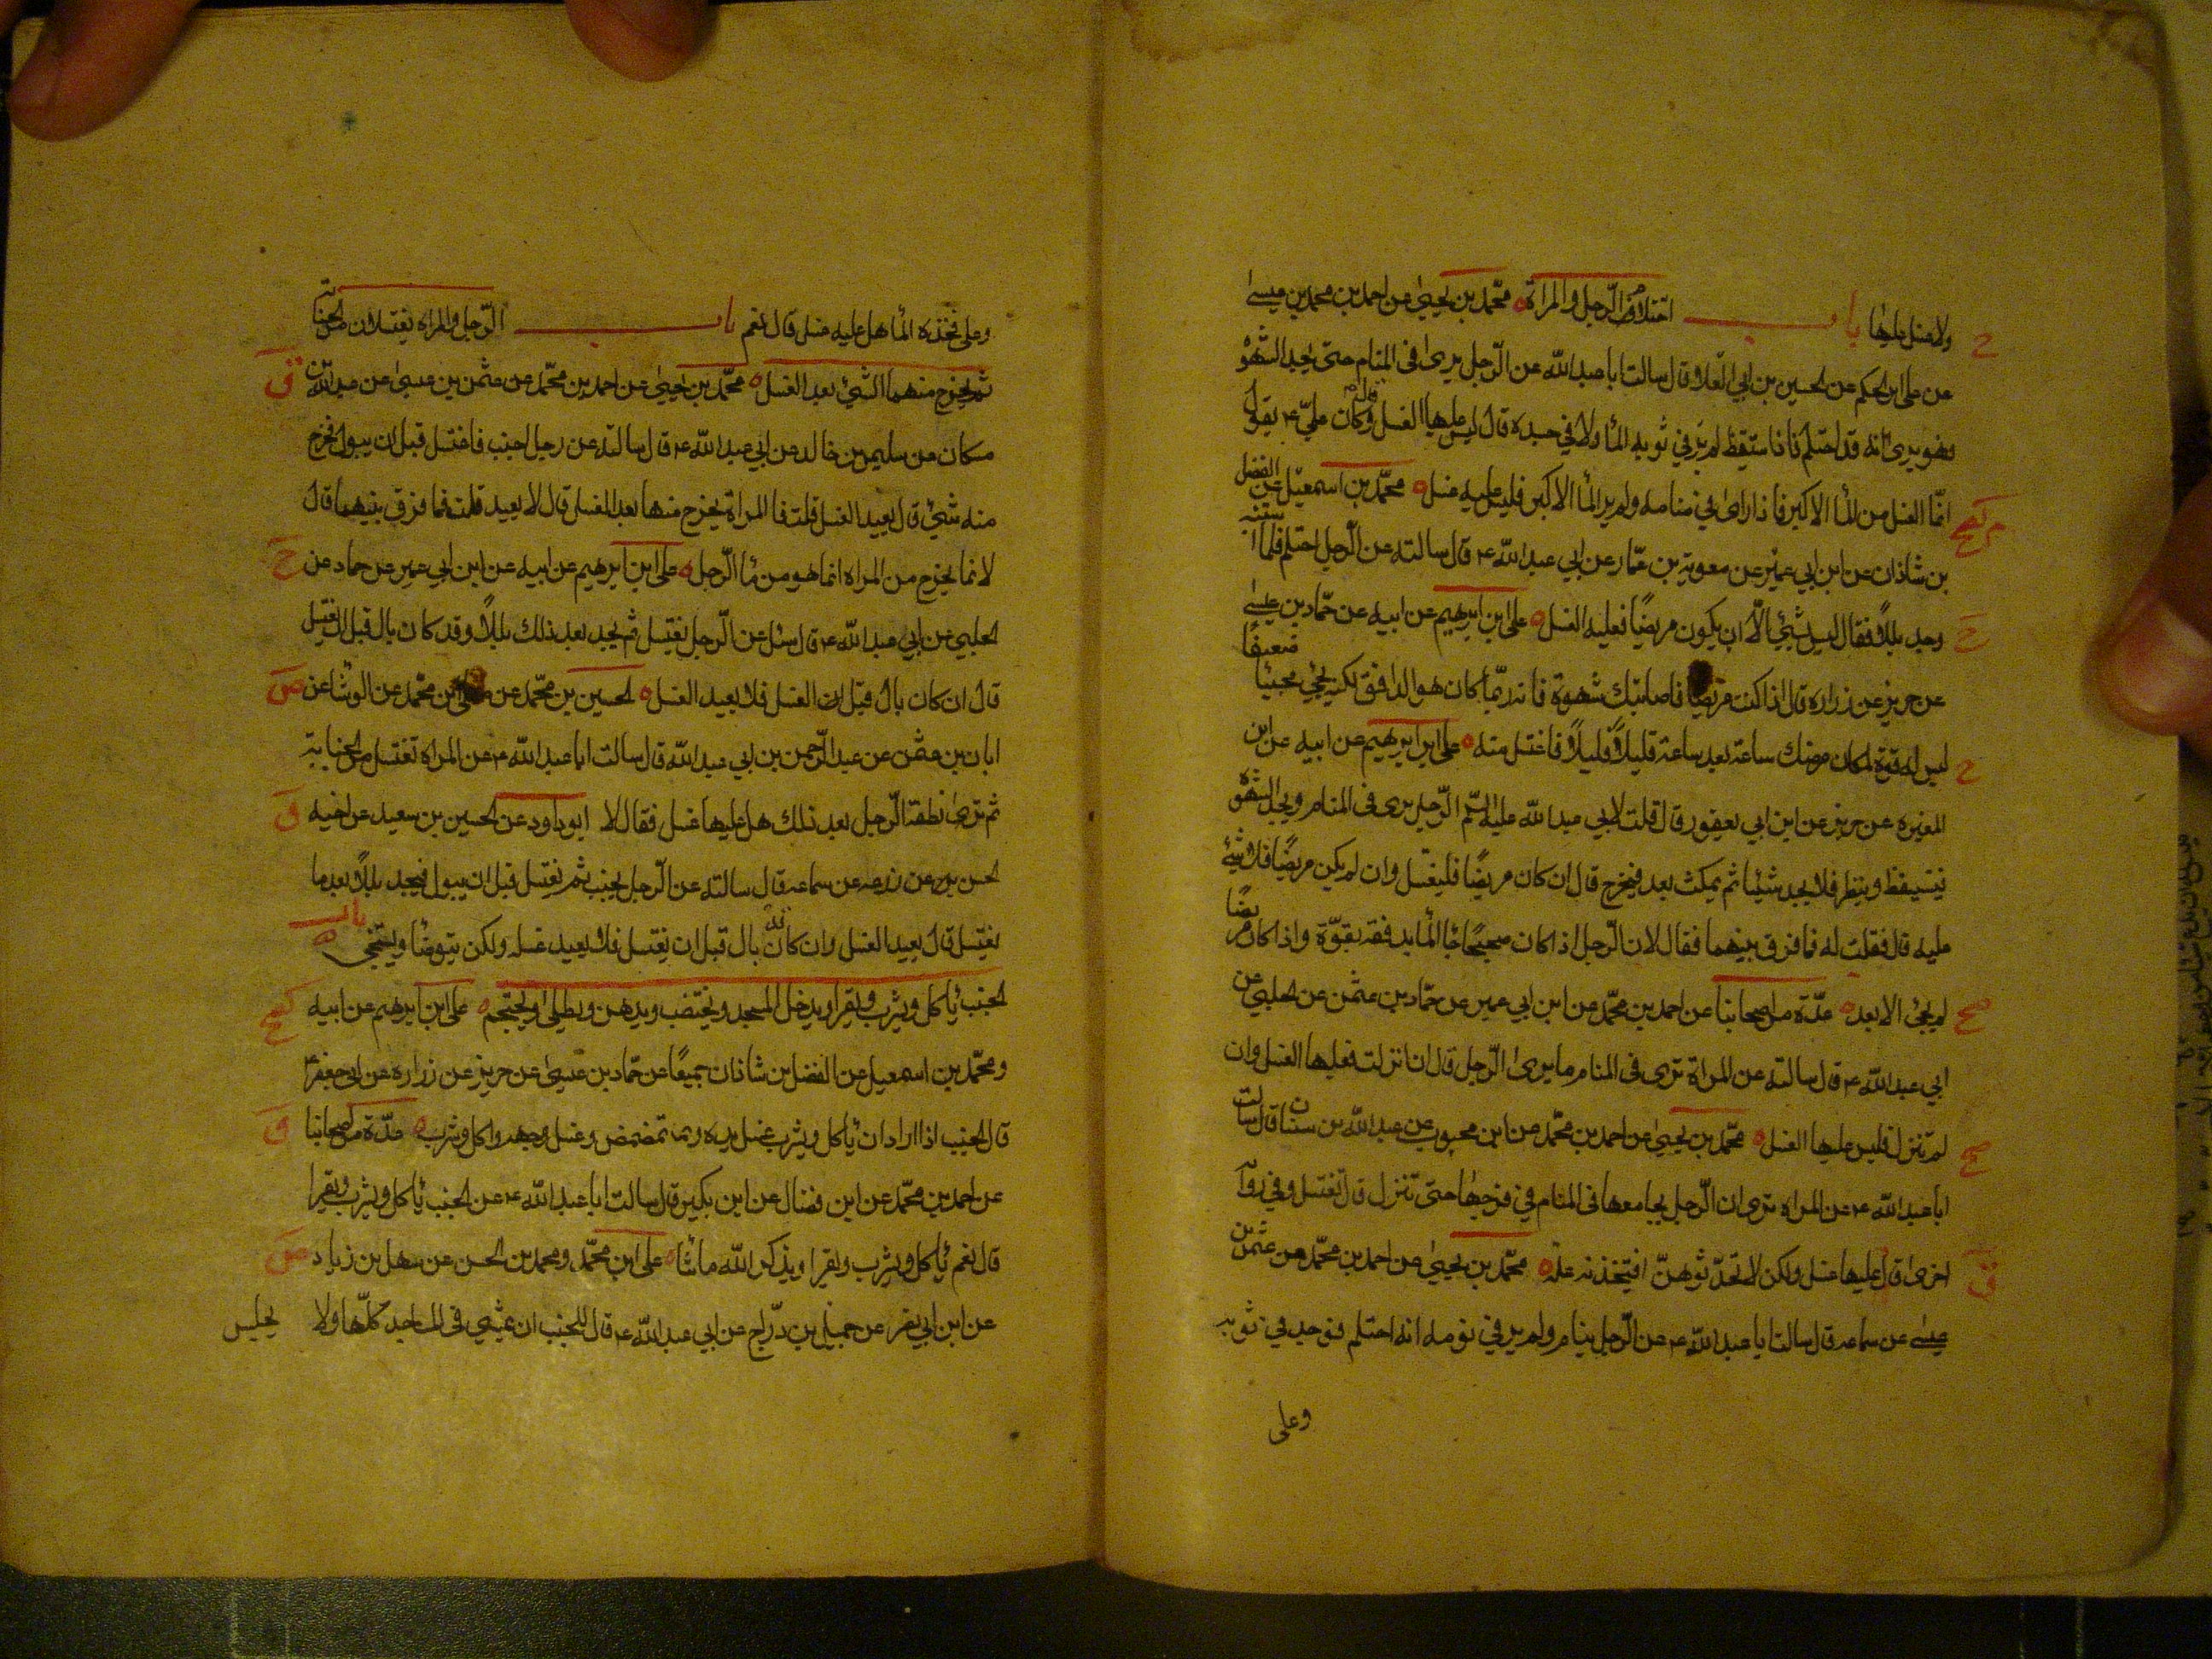 ولا غسل عليها باب احتلام الرجل والمراة محمد بن يحيى عن احمد بن محمد بن عيسى
عن علي بن الحكم عن الحسين بن ابي العلا قال سالت ابا عبد الله عن الرجل يرى في المنام حتى يجد الشهوة
وهو يرى انه قد احتلم فاذا استيقظ لم ير في ثوبه الماء ولا في جسده قال ليس عليها الغسل وكان علي ع يقول
انما الغسل من الماء الاكبر فاذا راى في منامه ولم ير الماء الاكبر فليس عليه غسل محمد بن اسمعيل عن الفضل
بن شاذان عن ابن ابي عمير عن معوية بن عمار عن ابي عبد الله ع قال سالته عن الرجل احتلم فلما انتبه
وجد بللا فقال ليس بشيء الا ان يكون مريضا فعليه الغسل علي ابن ابرهيم عن ابيه عن حماد بن عيسى
عن حريز عن زراره قال اذا كنت مريضا فاصابتك شهوة فانه ربما كان هو الدافق لكنه يجيء مجيئا ضعيفا
ليس له قوة لمكان مرضك ساعة بعد ساعة قليلا قليلا فاغتسل منه علي ابن ابرهيم عن ابيه عن ابن
المغيره عن حريز عن ابن ابي يعفور قال قلت لابي عبد الله عليه السلم الرجل يرى في المنام ويجد الشهوة
فيستيقظ وينظر فلا يجد شيئا ثم يمكث بعد فيخرج قال ان كان مريضا فليغتسل وان لم يكن مريضا فلا شيء
عليه قال فقلت له فما فرق بينهما فقال لان الرجل اذا كان صحيحا جاء الماء بدفقة بقوة واذا كان مريضا
لم يجئ الا بعد عدة من اصحابنا عن احمد بن محمد عن ابن ابي عمير عن حماد بن عثمن عن الحلبي عن
ابي عبد الله ع قال سالته عن المراة ترى في المنام ما يرى الرجل قال ان انزلت فعليها الغسل وان
لم تنزل فليس عليها الغسل محمد بن يحيى عن احمد بن محمد عن ابن محبوب عن عبد الله بن سنان قال سالت
ابا عبد الله ع عن المراه ترى ان الرجل يجامعها في المنام في فرجها حتى تنزل قال تغتسل وفي رواية
اخرى قال عليها غسل ولكن لا تحدثوهن افيتخذنه علة محمد بن يحيى عن احمد بن محمد عن عثمن بن
عيسى عن سماعه قال سالت ابا عبد الله ع عن الرجل ينام ولم ير في نومه انه احتلم فوجد في ثوبه
وعلى
وعلى فخذه الماء هل عليه غسل قال نعم باب الرجل والمراه يغتسلان من الجنابة
ثم يخرج منهما الشيء بعد الغسل محمد بن يحيى عن احمد بن محمد عن عثمن بن عيسى عن عبد الله بن
مسكان عن سليمن بن خالد عن ابي عبد الله ع قال سالته عن رجل اجنب فاغتسل قبل ان يبول فخرج
منه شيء قال يعيد الغسل قلت فالمراة يخرج منها بعد الغسل قال لا يعيد قلت فما فرق بينهما قال
لا نما يخرج من المراه انما هو من ماء الرجل علي ابن ابرهيم عن ابيه عن ابن ابي عمير عن حماد عن
الحلبي عن ابي عبد الله ع قال سئل عن الرجل يغتسل ثم يجد بعد ذلك بللا وقد كان بال قبل ان يغتسل
قال ان كان بال قبل ان الغسل فلا يعيد الغسل الحسين بن محمد عن معلى بن محمد عن الوشا عن
ابان بن عثمن عن عبد الرحمن بن ابي عبد الله قال سالت ابا عبد الله ع عن المراه تغتسل من الجنابة
ثم ترى نطفة الرجل بعد ذلك هل عليها غسل فقال لا ابو داود عن الحسين بن سعيد عن اخيه
الحسن عن زرعه عن سماعه قال سالته عن الرجل يجنب ثم يغتسل قبل ان يبول فيجد بللا بعد ما
يغتسل قال يعيد الغسل وان كان بال قبل ان يغتسل فلا يعيد غسله ولكن يتوضا ويستنجي باب
الجنب ياكل ويشرب ويقرا ويدخل المسجد ويختضب ويدهن ويطلي ويحتجم علي ابن ابرهيم عن ابيه
ومحمد بن اسمعيل عن الفضل بن شاذان جميعا عن حماد بن عيسى عن حريز عن زراره عن ابي جعفر ع
قال الجنب اذا اراد ان ياكل ويشرب غسل يده وتمضمض وغسل وجهه واكل وشرب عدة من اصحابنا
عن احمد بن محمد عن ابن فضال عن ابن بكير قال سالت ابا عبد الله ع عن الجنب ياكل ويشرب ويقرا
قال نعم ياكل ويشرب ويقرا ويذكر الله ما شا علي ابن محمد ومحمد بن الحسن عن سهل بن زياد
عن ابن ابي نصر عن جميل بن دراج عن ابي عبد الله ع قال للجنب ان يمشي في المساجد كلها ولا
يجلس